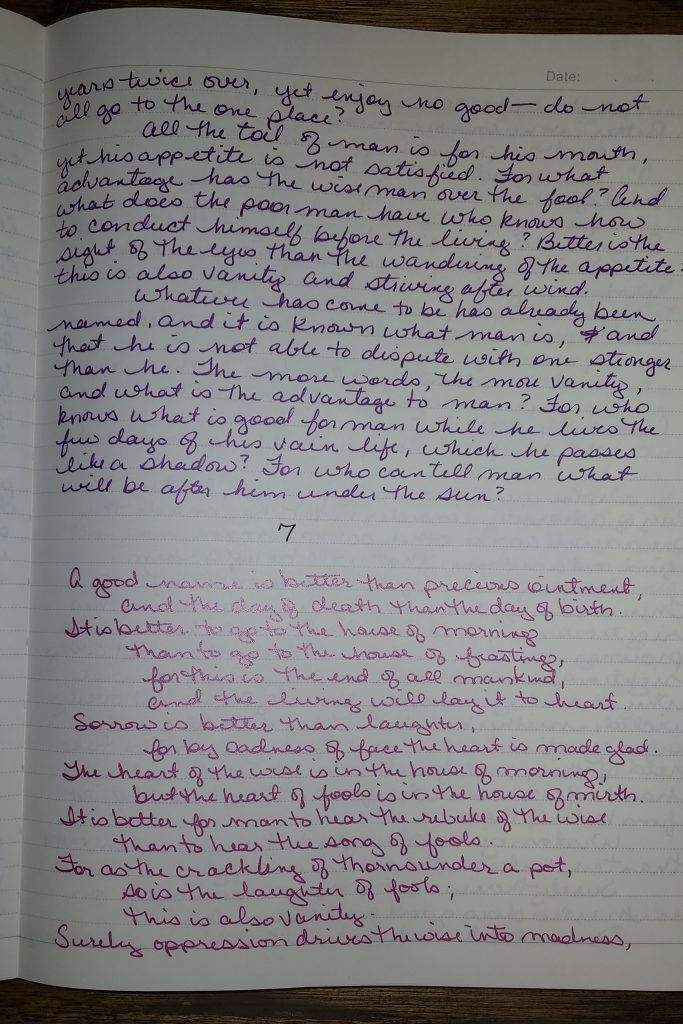 Date:
years twice over, yet enjoy no good— do not
all go to the one place?
All the toil of man is for his mouth,
yet his appetite is not satisfied. For what
advantage has the wise man over the fool? And
what does the poor man have who knows how
to conduct himself before the living? Better is the
sight of the eyes than the wandering of the appetite:
this is also vanity and striving after wind.
Whatever has come to be has already been
named, and it is known what man is, and
that he is not able to dispute with one stronger
than he. The more words, the more vanity,
and what is the advantage to man? For who
knows what is good for man while he lives the
few days of his vain life, which he passes
like a shadow? For who can tell man what
will be after him under the sun?
7
A good name is better than precious ointment,
and the day of death than the day of birth.
It is better to go to the house of morning
than to go to the house of feasting,
for this is the end of all mankind,
and the living will lay it to heart.
Sorrow is better than laughter,
for by sadness of face the heart is made glad.
The heart of the wise is in the house of morning,
but the heart of fools is in the house of mirth.
It is better for man to hear the rebuke of the wise
than to hear the song of fools.
For as the crackling of thorns under a pot,
so is the laughter of fools;
this is also vanity.
Surely oppression drives the wise into madness,